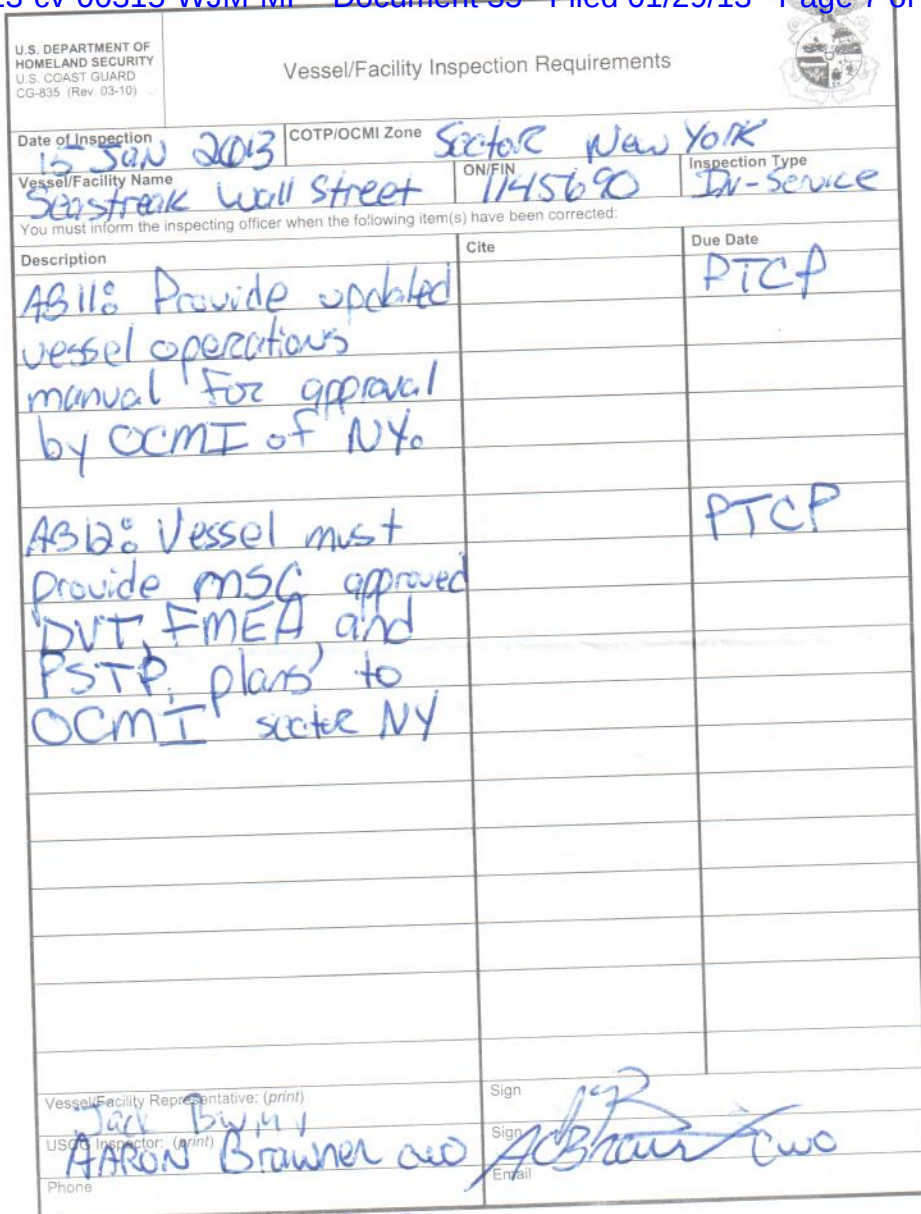 23-cv-00315-WJM-MF Document 35 Filed 01/29/13 Page 7 of
U.S. DEPARTMENT OF
HOMELAND SECURITY
U.S. COAST GUARD
CG-835 (Rev. 03-10)
Vessel/Facility Inspection Requirements
Date of Inspection
15 JAN 2013
COTP/OCMI Zone
Sector New York
Vessel/Facility Name
Seastreak Wall Street
ON/FIN
1145690
Inspection Type
IN-Service
You must inform the inspecting officer when the following item(s) have been corrected:
Description Cite Due Date
AB11: Provide updated PTCP
vessel operations
manual for approval
by OCMI of NY.
AB12: Vessel must PTCP
provide MSC approved
DVT, FMEA, and
PSTP, plans to
OCMI sector NY
Vessel/Facility Representative: (print)
Jack
Sign
USCG Inspector: (print)
AARON Brawner CWO
Sign
CWO
Phone
Email